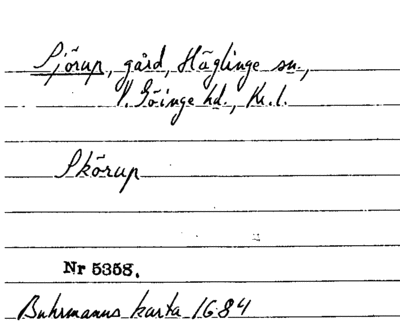 Sjörup, gård, Häglinge sn.,
V. Göinge hd., Kr. l.
Skörup
Nr 5358.
Buhrmanns karta 1684